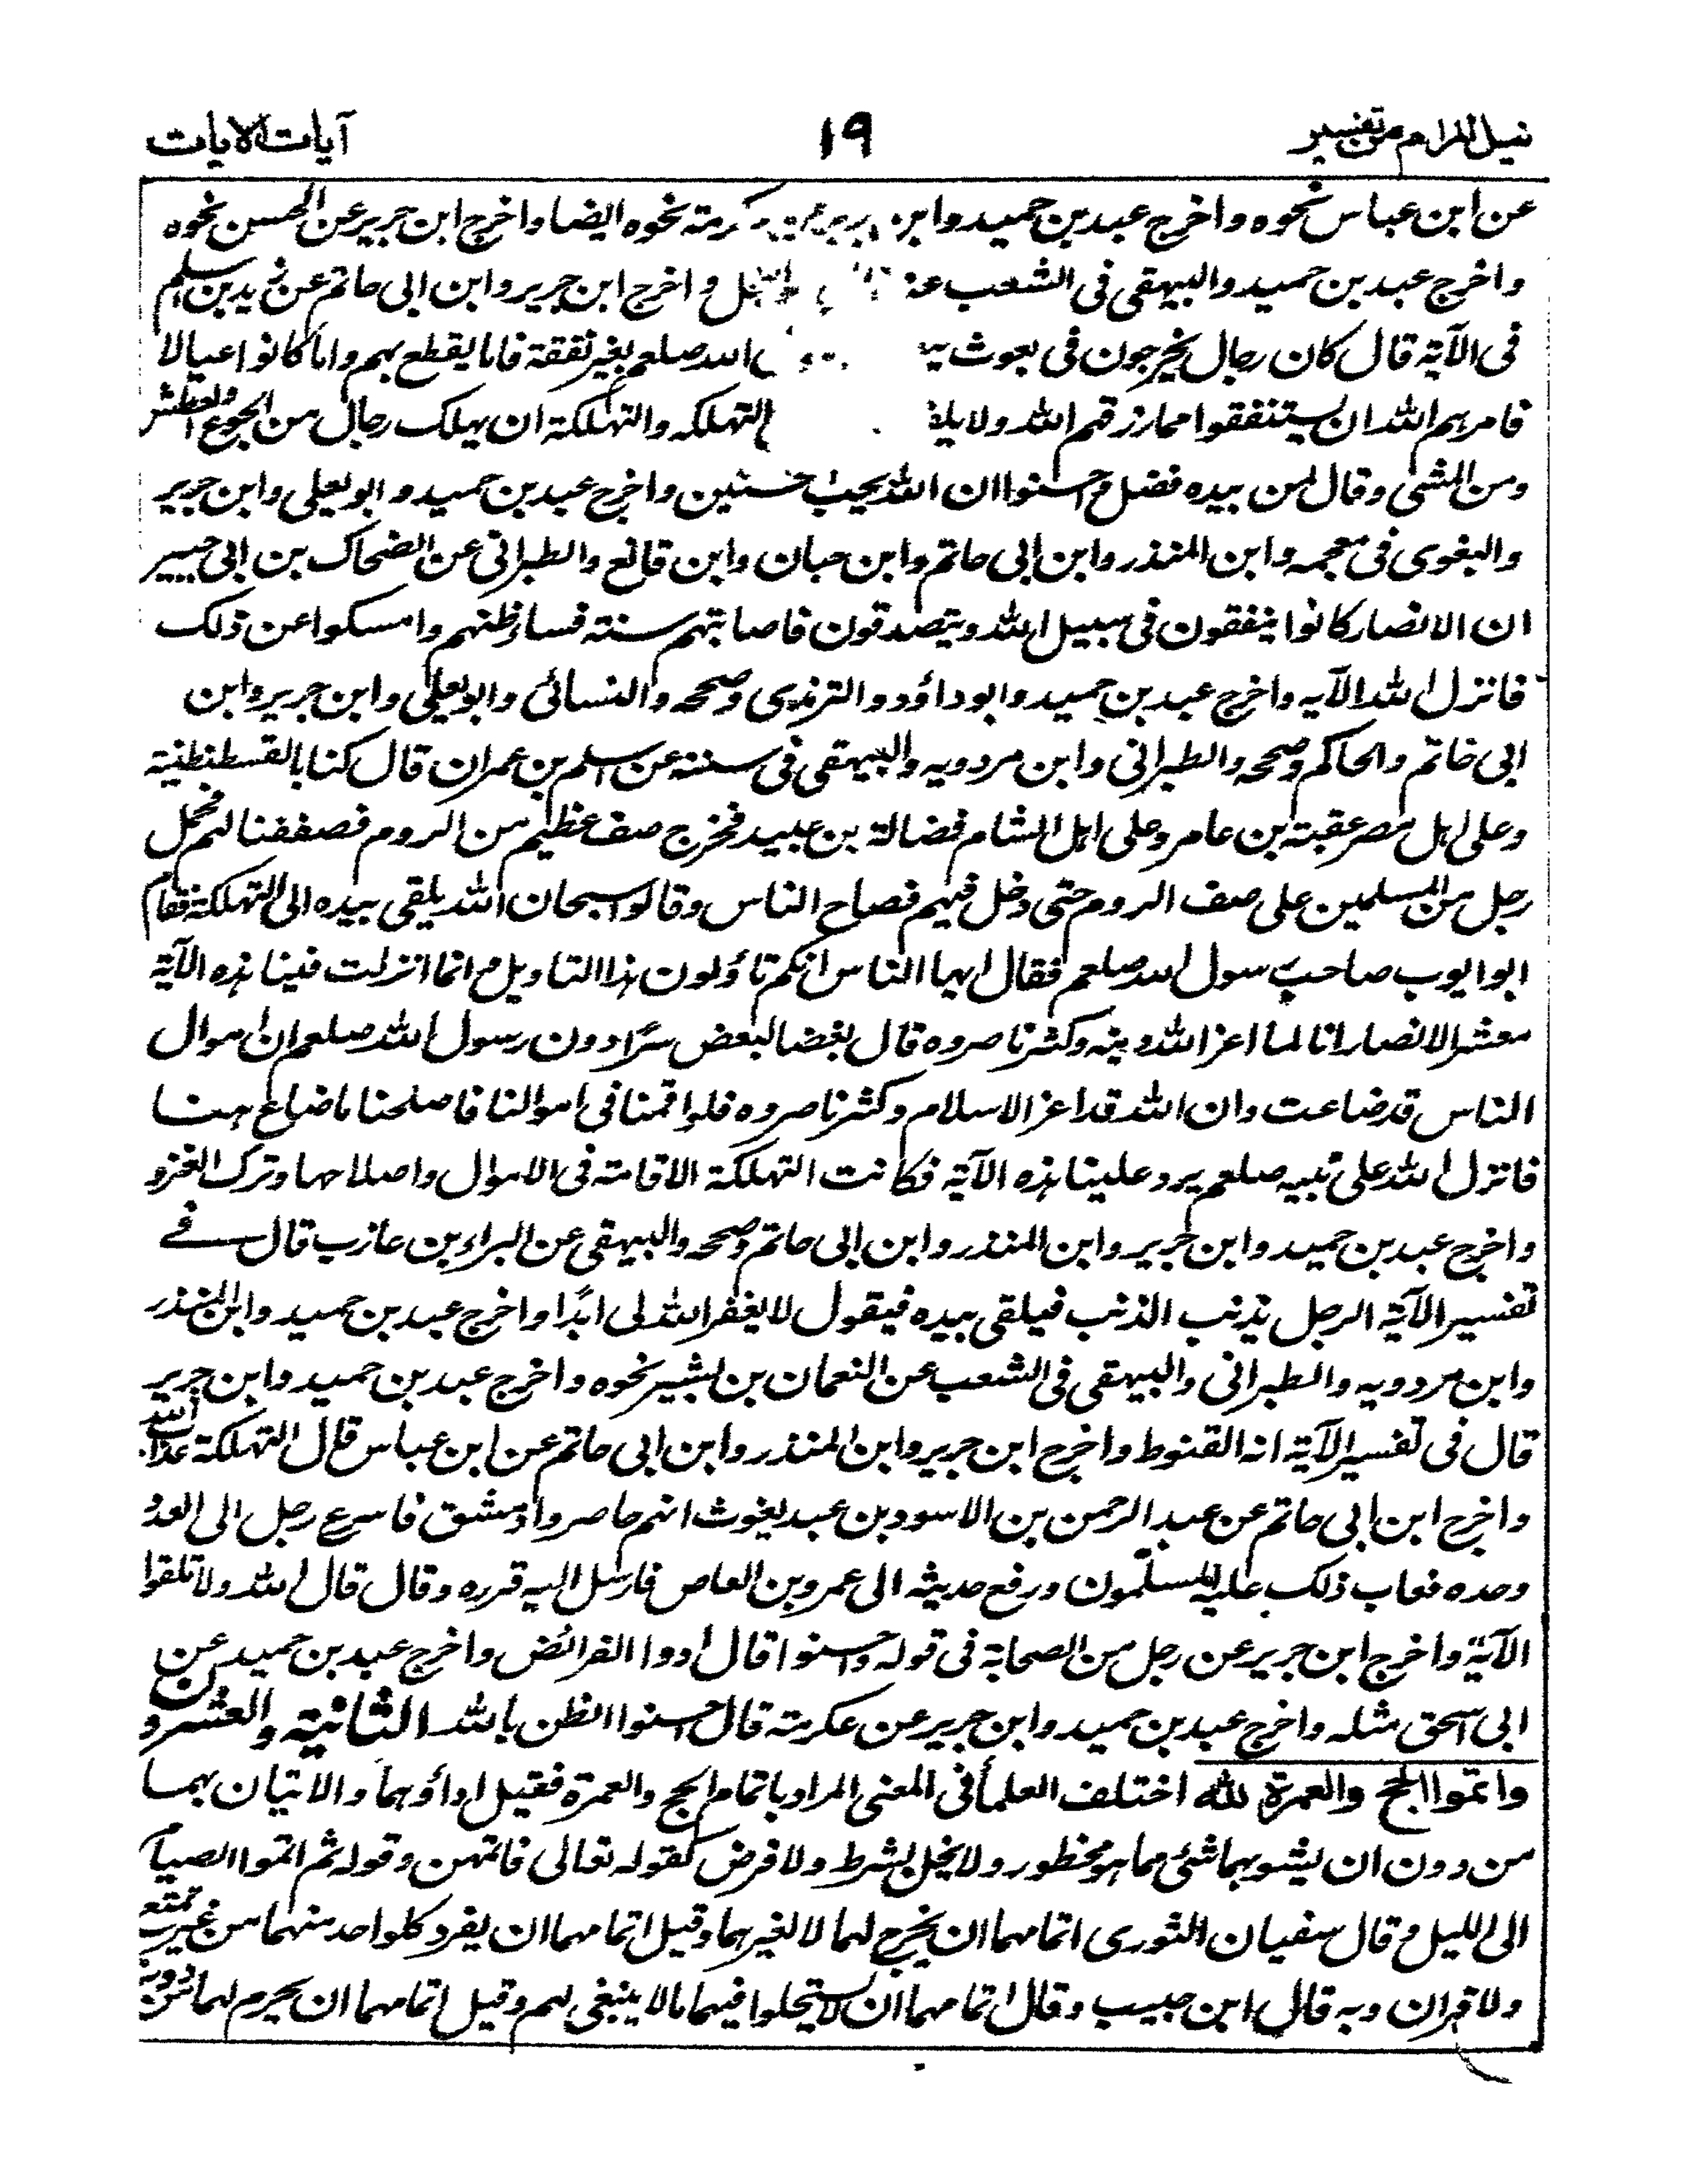 نيل المرام من تفسير
١٩
آيات الايات
عن ابن عباس نحوه واخرج عبد بن حميد وابن كرمة نحوه ايضا واخرج ابن جرير عن الحسن نحوه
واخرج عبد بن حميد والبيهقي في الشعب واخرج ابن جرير وابن ابي حاتم عن زيد بن اسلم
في الآية قال كان رجال يخرجون في بعوث الله صلعم بغير نفقة فاما يقطع بهم واما كانوا عيالا
فامرهم الله ان يستنفقوا مما رزقهم الله ولا التهلكه والتهلكة ان يهلك رجال من الجوع والعطش
ومن المشي وقال لمن بيده فضل واحسنوا ان الله يحب المحسنين واخرج عبد بن حميد وابو يعلى وابن جرير
والبغوي في معجمه وابن المنذر وابن ابي حاتم وابن حبان وابن قانع والطبراني عن الضحاك بن ابي جبير
ان الانصار كانوا ينفقون في سبيل الله ويتصدقون فاصابتهم سنته فساء ظنهم وامسكوا عن ذلك
فانزل الله الآيه واخرج عبد بن حميد وابوداؤد والترمذي وصححه والنسائى وابو يعلى وابن جرير وابن
ابي حاتم والحاكم وصححه والطبراني وابن مردويه والبيهقي في سننه عن اسلم بن عمران قال كنا بالقسطنطنية
وعلى اهل مصر عقبة بن عامر وعلى اهل الشام فضالة بن عبيد فخرج صف عظيم من الروم فصففنا لهم فحمل
رجل من المسلمين على صف الروم حتى دخل فيهم فصاح الناس وقالوا سبحان الله يلقي بيده الى التهلكة فقام
ابوايوب صاحب رسول الله صلعم فقال ايها الناس انكم تأولون هذا التاويل وانما انزلت فينا هذه الآية
معشر الانصار انا لما اعز الله دينه وكثر ناصروه قال بعضنا لبعض سرًا دون رسول الله صلعم ان اموال
الناس قد ضاعت وان الله قد اعز الاسلام وكثر ناصروه فلو اقمنا في اموالنا فاصلحنا ما ضاع منها
فانزل الله على نبيه صلعم يرد علينا هذه الآية فكانت التهلكة الاقامة في الاموال واصلاحها وترك الغزو
واخرج عبد بن حميد وابن جرير وابن المنذر وابن ابي حاتم وصححه والبيهقي عن البراء بن عازب قال في
تفسير الآية الرجل يذنب الذنب فيلقي بيده فيقول لا يغفر الله لي ابدًا واخرج عبد بن حميد وابن المنذر
وابن مردويه والطبراني والبيهقي في الشعب عن النعمان بن بشير نحوه واخرج عبد بن حميد وابن جرير
قال في تفسير الآية انه القنوط واخرج ابن جرير وابن المنذر وابن ابي حاتم عن ابن عباس قال التهلكة عذاب الله
واخرج ابن ابي حاتم عن عبد الرحمن بن الاسود بن عبد يغوث انهم حاصروا دمشق فاسرع رجل الى العدو
وحده فعاب ذلك عليه المسلمون ورفع حديثه الى عمرو بن العاص فارسل اليه فرده وقال قال الله ولا تلقوا
الآية واخرج ابن جرير عن رجل من الصحابة في قوله واحسنوا قال ادوا الفرائض واخرج عبد بن حميد عن
ابي اسحق مثله واخرج عبد بن حميد وابن جرير عن عكرمته قال احسنوا الظن بالله الثانية والعشرون
واتموا الحج والعمرة لله اختلف العلمأ في المعنى المراد باتمام الحج والعمرة فقيل اداؤهما والاتيان بهما
من دون ان يشوبهما شئ مما هو محظور ولا يخل بشرط ولا فرض كقوله تعالى فاتمهن وقوله ثم اتموا الصيام
الى الليل وقال سفيان الثوري اتمامهما ان يخرج لهما لا لغيرهما وقيل اتمامهما ان يفرد كلواحد منهما من غير تمتع
ولا قران وبه قال ابن حبيب وقال اتمامهما ان لا يستحلوا فيهما ما لا ينبغي لهم وقيل اتمامهما ان يحرم لهما من دويرة